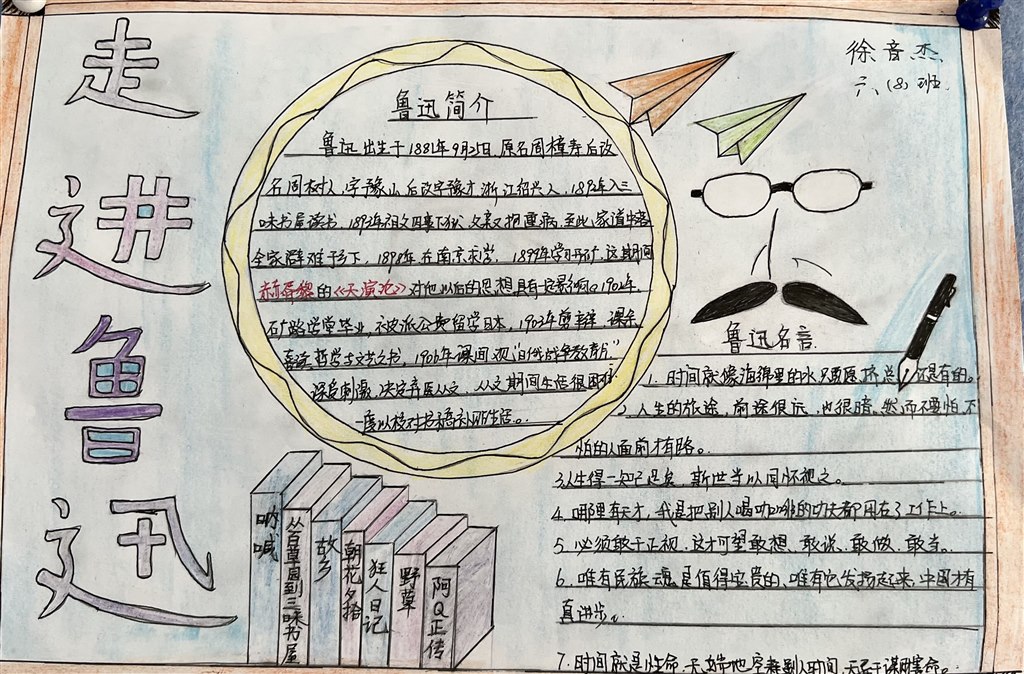 走进鲁迅
徐音杰
六、(8)班.
鲁迅简介
鲁迅出生于1881年9月25日.原名周樟寿后改
名周树人,字豫山,后改字豫才浙江绍兴人.1892年入三
味书屋读书.1893年祖父因事下狱,父亲又抱重病,至此,家道中落
全家避难于乡下,1898年在南京求学,1899年学习开矿.这期间
赫胥黎的《天演论》对他以后的思想具有一定影响。1902年.
矿路学堂毕业,被派公费留学日本,1903年剪辫 课余
喜读哲学与文艺之书.1906年课间观"日俄战争教育片"
深启刺激,决定弃医从文.从文期间生活很困难
一度以校对书稿
鲁迅名言
1.时间就像海绵里的水只要愿挤总 还是有的。
2.人生的旅途,前途很远,也很暗。然而不要怕,不
怕的人面前才有路。
3.人生得一知己足矣,斯世当以同怀视之。
4.哪里有天才,我是把别人喝咖啡的功夫都用在了工作上。
5.必须敢于正视,这才可望敢想、敢说、敢做、敢当。
6.唯有民族魂是值得宝贵的,唯有它发扬起来,中国才有
真进步。
7.时间就是性命,无端地空耗别人时间,无异于谋财害命。
呐喊
从百草园到三味书屋
故乡
朝花夕拾
狂人日记
野草
阿Q正传